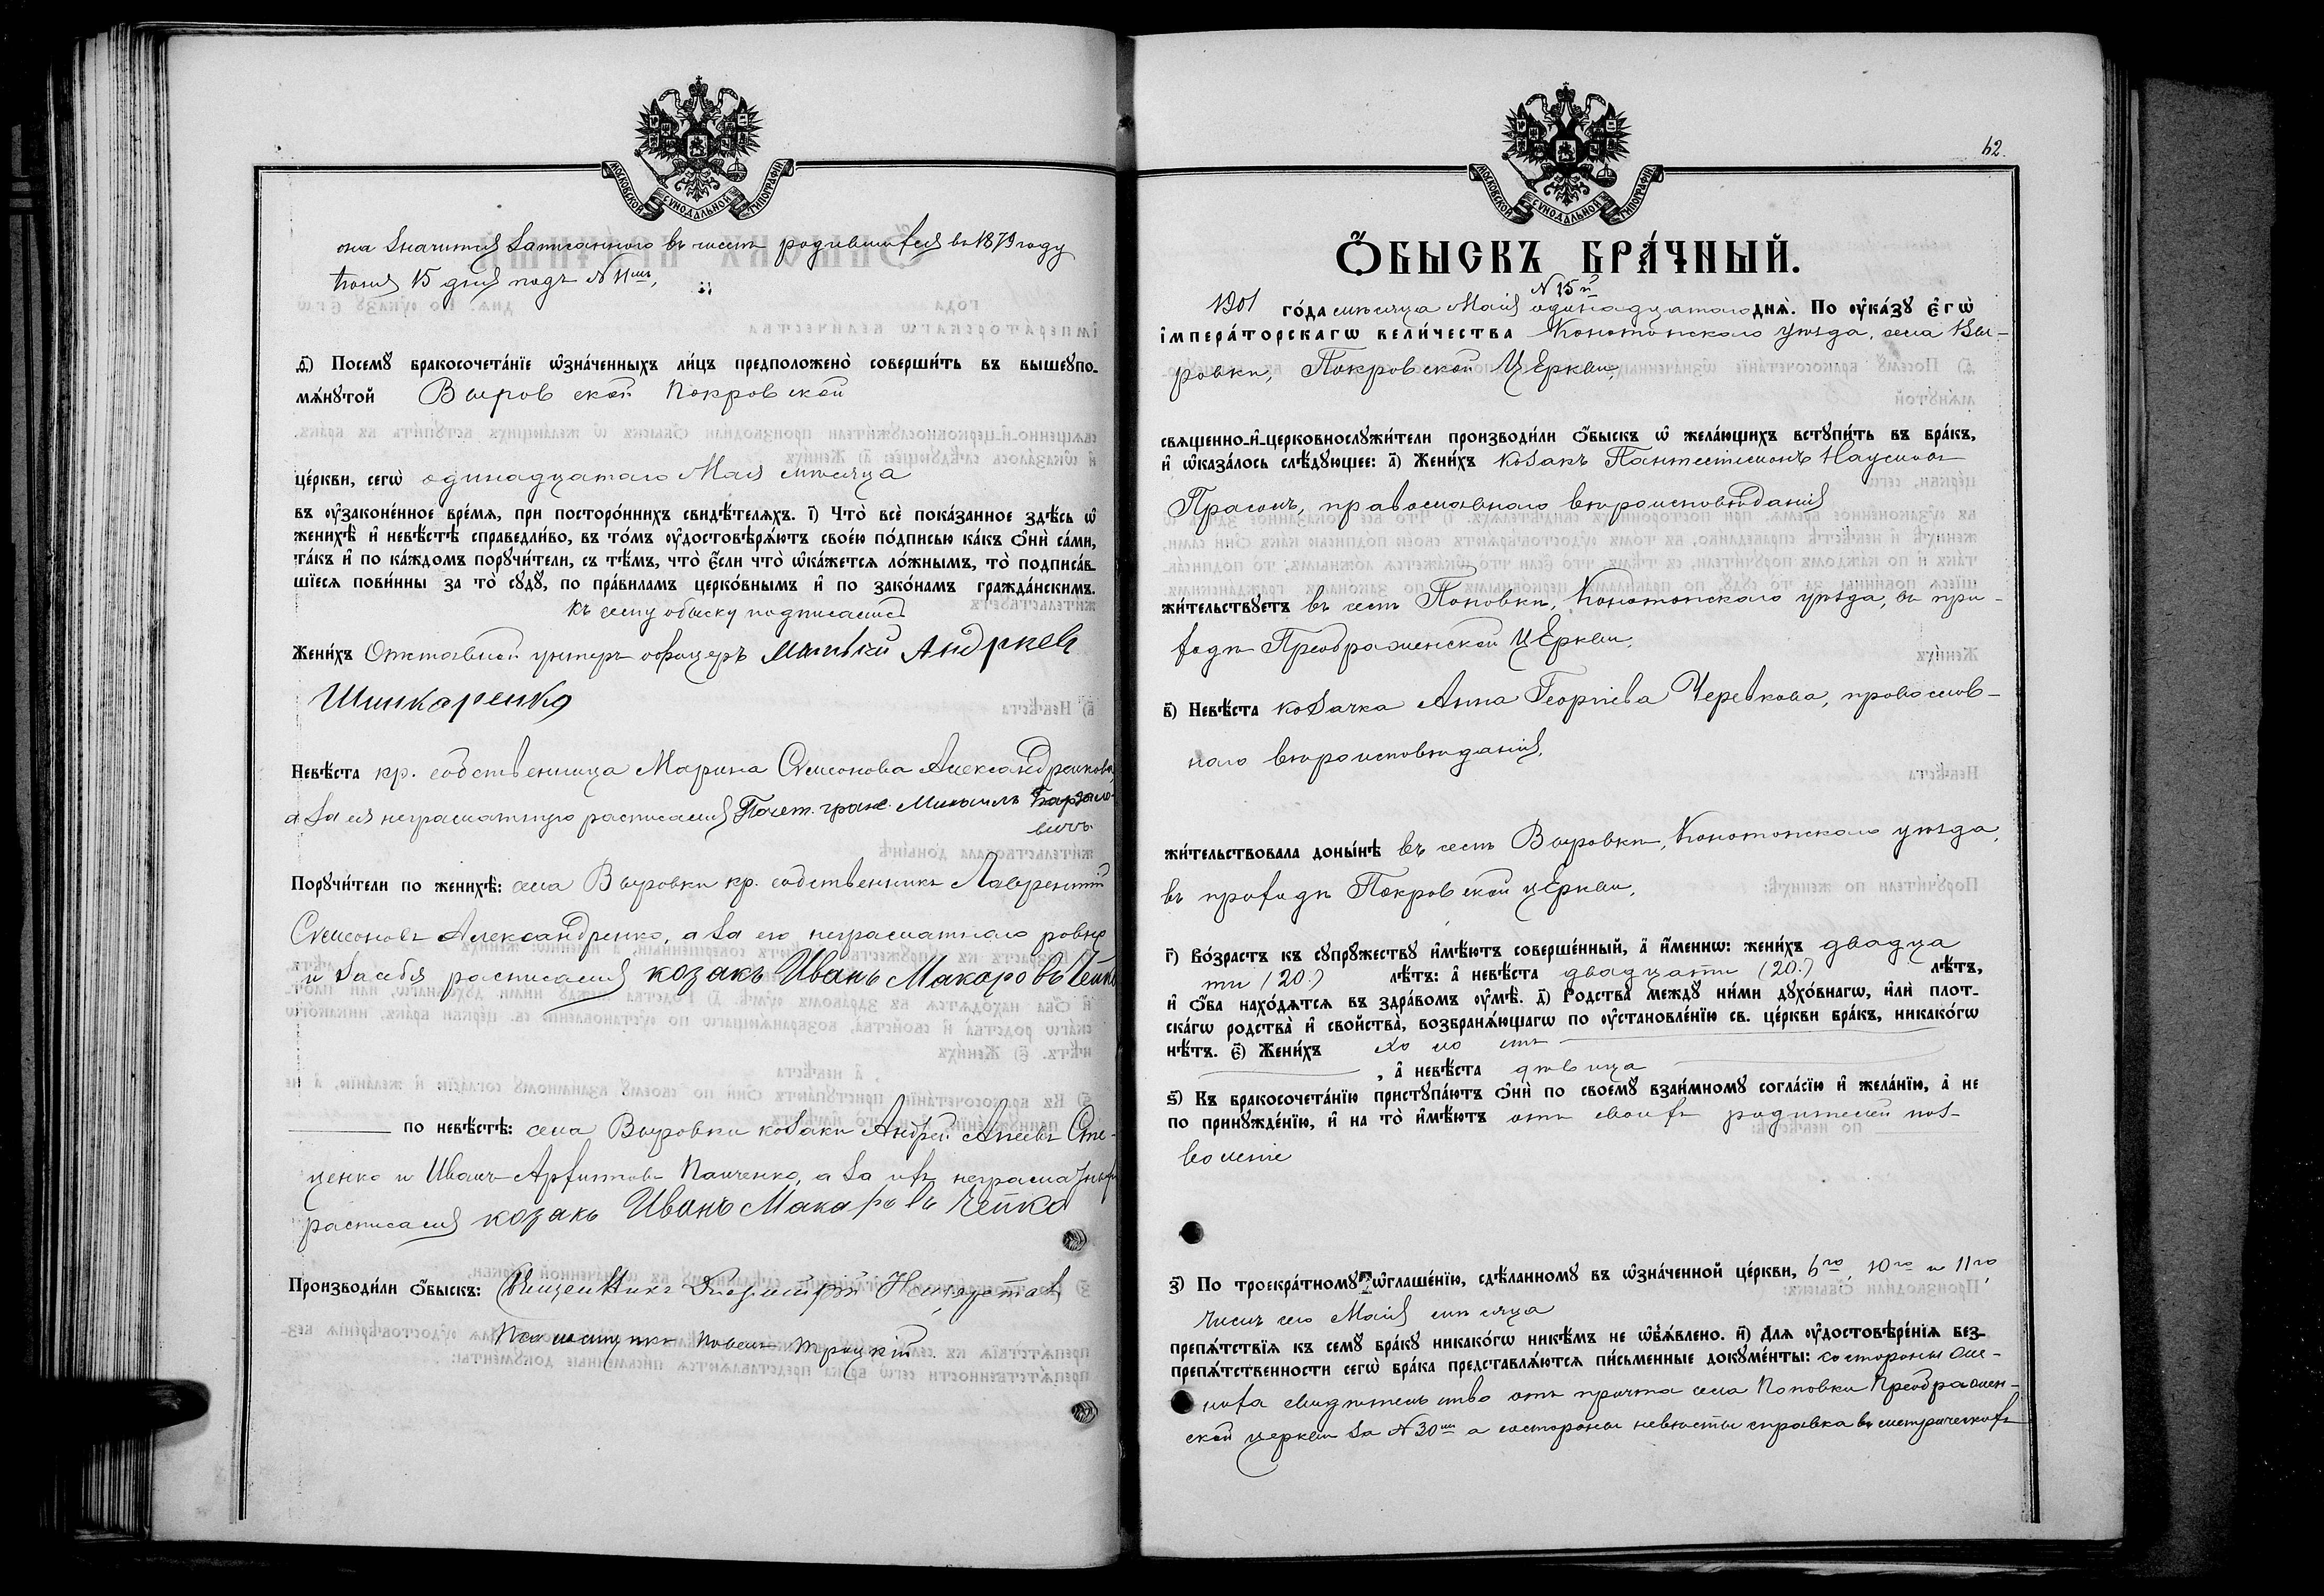 МОСКОВСКОЙ СѴНОДАЛЬНОЙ ТИПОГРАФІИ
она значится записанною въ числѣ родившихся въ 1879 году
Іюня 15 дня подъ № 11мъ,
ѳ҃) Посемꙋ̀ бракосочета́нїе ѡ҆зна́ченныхъ ли́цъ предположено̀ соверши́ть въ вышеꙋпо-
мѧ́нꙋтой Выровской Покровской
це́ркви, сегѡ̀ одинадцатаго Мая мѣсяца
въ ᲂу҆законе́нное вре́мѧ, при посторо́ннихъ свидѣ́телѧхъ. і҃) Что̀ всѐ пока́занное здѣ́сь ѡ҆
женихѣ̀ и҆ невѣ́стѣ справедли́во, въ то́мъ ᲂу҆достовѣрѧ́ютъ свое́ю по́дписью ка́къ ѻ҆нѝ са́ми,
та́къ и҆ по ка́ждомъ порꙋчи́тели, съ тѣ́мъ, что̀ є҆́сли что̀ ѡ҆ка́жется ло́жнымъ, то̀ подписа́в-
шїесѧ пови́нны за то̀ сꙋдꙋ̀, по пра́виламъ церко́внымъ и҆ по зако́намъ гражда́нскимъ.
Къ сему обыску подписались
Жени́хъ Отставной унтеръ офицеръ Матвѣй Андрѣевъ
Шинкаренко
Невѣ́ста кр. собственница Марина Семонова Александренкова,
а за ея неграмотную расписался Почет. граж. Михаилъ
Порꙋчи́тели по женихѣ̀: села Выровки кр. собственникъ Лаврентій
Семоновъ Александренко, а за его неграмотнаго ровно
и за себя расписался козакъ Иванъ Макаровъ Чепко
по невѣ́стѣ: села Выровки козаки Андрей Сте-
ценко и Иванъ Архиповъ Панченко, а за ихъ неграмотныхъ
расписался козакъ Иванъ Макаровъ Чепко
Производи́ли ѻ҆́быскъ: Священникъ
Псаломщикъ Павелъ Троцкій
62.
МОСКОВСКОЙ СѴНОДАЛЬНОЙ ТИПОГРАФІИ
Ѻ҆́БЫСКЪ БРА́ЧНЫЙ.
№ 15й
1901 го́да мѣсяца Мая одинадцатаго днѧ̀. По ᲂу҆ка́зꙋ Є҆гѡ̀
І҆мпера́торскагѡ Вели́чества Конотопскаго уѣзда, села Вы-
ровки, Покровской Церкви,
свѧщенно-и҆-церковнослꙋжи́тели производи́ли ѻ҆́быскъ ѡ҆ жела́ющихъ встꙋпи́ть въ бра́къ,
и҆ ѡ҆каза́лось слѣ́дꙋющее: а҃) Жени́хъ козакъ Пантелеимонъ Наумовъ
Прасолъ, православнаго вѣроисповѣданія
жи́тельствꙋетъ въ селѣ Поповки, Конотопскаго уѣзда, въ при-
ходѣ Преображенской Церкви,
в҃) Невѣ́ста козачка Анна Георгіева Черевкова, православ-
наго вѣроисповѣданія,
жи́тельствовала доны́нѣ въ селѣ Выровки, Конотопскаго уѣзда,
въ приходѣ Покровской церкви,
г҃) Во́зрастъ къ сꙋпрꙋ́жествꙋ и҆мѣ́ютъ соверше́нный, а҆ и҆́менно: жени́хъ двадца
ти (20.) лѣ́тъ: а҆ невѣ́ста двадцати (20.) лѣ́тъ,
и҆ ѻ҆́ба нахо́дѧтсѧ въ здра́вомъ ᲂу҆мѣ̀. д҃) Родства̀ междꙋ̀ ни́ми дꙋхо́внагѡ, и҆лѝ плот-
ска́гѡ родства̀ и҆ сво́йства, возбранѧ́ющагѡ по ᲂу҆становле́нїю св. це́ркви бра́къ, никако́гѡ
нѣ́тъ. є҃) Жени́хъ холостъ
, а҆ невѣ́ста дѣвица
ѕ҃) Къ бракосочета́нїю пристꙋпа́ютъ ѻ҆нѝ по своемꙋ̀ взаи́мномꙋ согла́сїю и҆ жела́нїю, а҆ не
по принꙋжде́нїю, и҆ на то̀ и҆мѣ́ютъ отъ своихъ родителей поз-
воленіе
з҃) По троекра́тномꙋ ѡ҆глаше́нїю, сдѣ́ланномꙋ въ ѡ҆зна́ченной це́ркви, 6го, 10го и 11го
числъ сего Мая мѣсяца
препѧ́тствїѧ къ семꙋ̀ бра́кꙋ никако́гѡ никѣ́мъ не ѡ҆б̾ѧ́влено. и҃) Длѧ ᲂу҆достовѣре́нїѧ без-
препѧ́тственности сегѡ̀ бра́ка представлѧ́ютсѧ пи́сьменные докꙋме́нты: со стороны же-
ниха свидѣтельство отъ причта села Поповки Преображен-
ской церкви за № 30мъ а состороны невѣсты справка въ метрическихъ